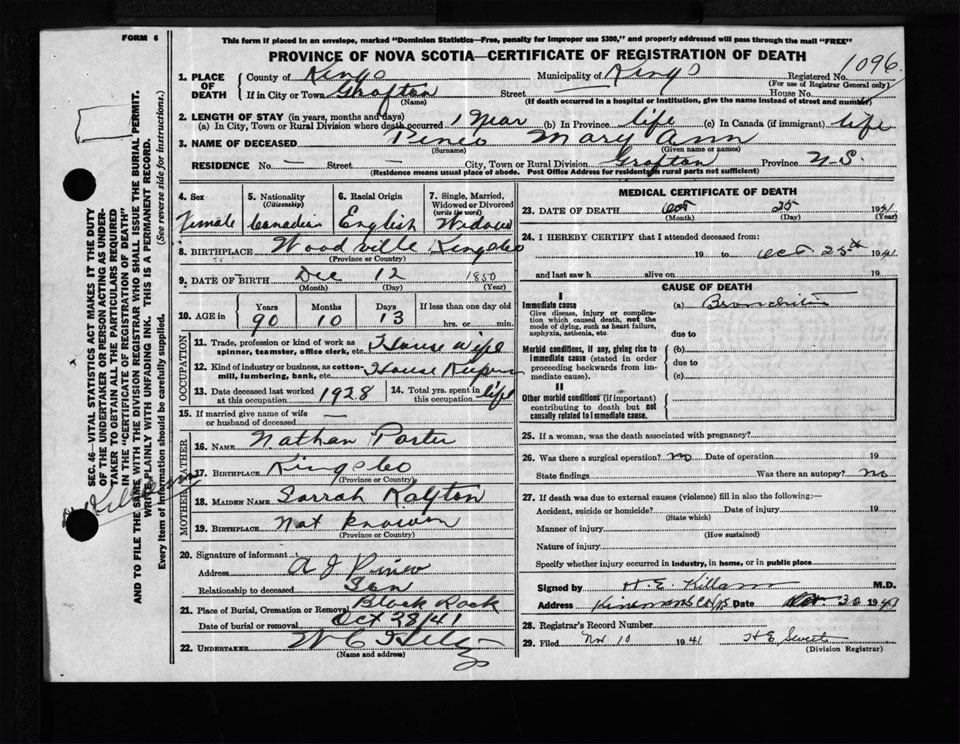 FORM 6
This form if placed in an envelope, marked "Dominion Statistics—Free, penalty for improper use $300," and properly addressed will pass through the mail "FREE"
PROVINCE OF NOVA SCOTIA—CERTIFICATE OF REGISTRATION OF DEATH
1096
1. PLACE OF DEATH
County of Kings Municipality of Kings Registered No.
(For use of Registrar General only)
If in City or Town Grafton Street — House No.
(Name) (If death occurred in a hospital or institution, give the name instead of street and number)
2. LENGTH OF STAY (in years, months and days)
(a) In City, Town or Rural Division where death occurred 1 Year (b) In Province life (c) In Canada (if immigrant) life
3. NAME OF DECEASED Pineo Mary Ann
(Surname) (Given name or names)
RESIDENCE No. — Street — City, Town or Rural Division Grafton Province N.S.
(Residence means usual place of abode. Post Office Address for residents in rural parts not sufficient)
4. Sex 5. Nationality (Citizenship) 6. Racial Origin 7. Single, Married, Widowed or Divorced (write the word)
Female Canadian English Widow
8. BIRTHPLACE Woodville Kings Co
(Province or Country)
9. DATE OF BIRTH Dec 12 1850
(Month) (Day) (Year)
10. AGE in Years Months Days If less than one day old
90 10 13 hrs. or min.
OCCUPATION
11. Trade, profession or kind of work as spinner, teamster, office clerk, etc. House wife
12. Kind of industry or business, as cotton-mill, lumbering, bank, etc. House Keeping
13. Date deceased last worked at this occupation 1928 14. Total yrs. spent in this occupation life
15. If married give name of wife or husband of deceased —
FATHER
16. NAME Nathan Porter
17. BIRTHPLACE Kings Co
(Province or Country)
MOTHER
18. MAIDEN NAME Sarrah
19. BIRTHPLACE Not Known
(Province or Country)
20. Signature of informant A J Pineo
Address
Relationship to deceased Son
21. Place of Burial, Cremation or Removal Black Rock
Date of burial or removal Oct 28/41
22. UNDERTAKER W C
(Name and address)
MEDICAL CERTIFICATE OF DEATH
23. DATE OF DEATH Oct 25 1941
(Month) (Day) (Year)
24. I HEREBY CERTIFY that I attended deceased from:
19 to Oct. 25th 1941
and last saw h alive on 19
CAUSE OF DEATH
I
Immediate cause (a) Bronchitis
Give disease, injury or complication which caused death, not the mode of dying, such as heart failure, asphyxia, asthenia, etc.
due to
Morbid conditions, if any, giving rise to immediate cause (stated in order proceeding backwards from immediate cause). (b)
due to
(c)
II
Other morbid conditions (if important) contributing to death but not causally related to immediate cause.
25. If a woman, was the death associated with pregnancy?
26. Was there a surgical operation? no Date of operation 19
State findings Was there an autopsy? no
27. If death was due to external causes (violence) fill in also the following:—
Accident, suicide or homicide? Date of injury 19
(State which)
Manner of injury
(How sustained)
Nature of injury
Specify whether injury occurred in industry, in home, or in public place
Signed by H. E. Killam M.D.
Address Kinsmans Date 30 1941
28. Registrar's Record Number
29. Filed Nov 10 1941 H E
(Division Registrar)
SEC. 46—VITAL STATISTICS ACT MAKES IT THE DUTY
OF THE UNDERTAKER OR PERSON ACTING AS UNDERTAKER TO OBTAIN ALL THE PARTICULARS REQUIRED
IN THE "CERTIFICATE OF REGISTRATION OF DEATH"
AND TO FILE THE SAME WITH THE DIVISION REGISTRAR WHO SHALL ISSUE THE BURIAL PERMIT.
WRITE PLAINLY WITH UNFADING INK. THIS IS A PERMANENT RECORD.
Every item of information should be carefully supplied. (See reverse side for instructions.)